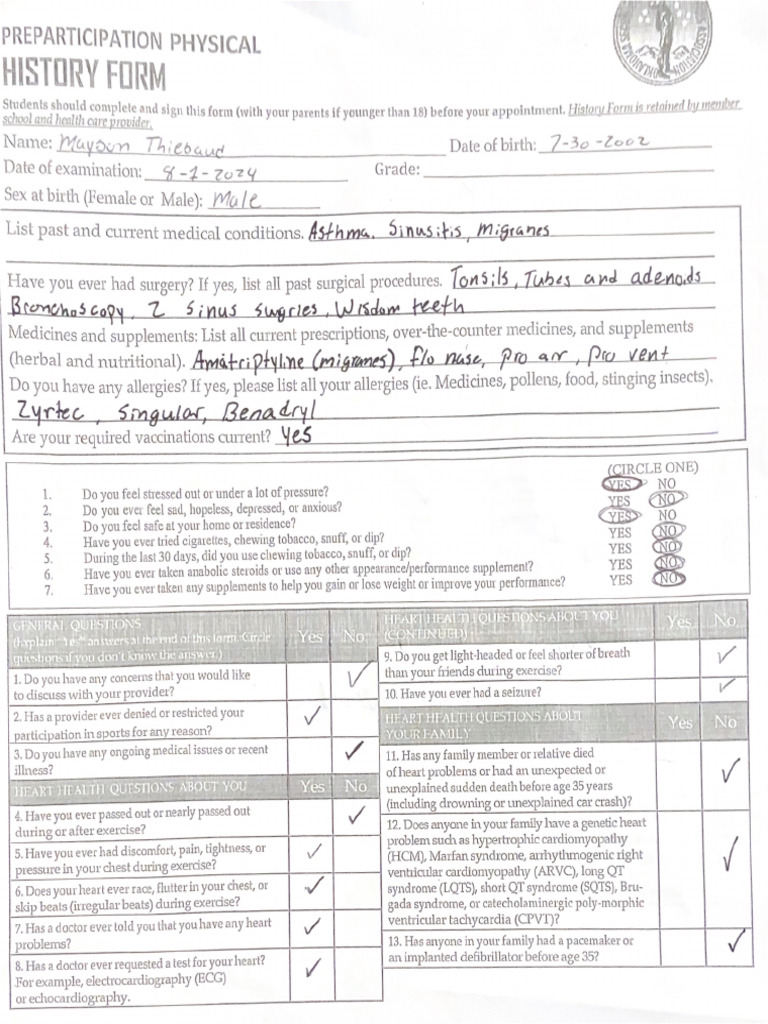 PREPARTICIPATION PHYSICAL
HISTORY FORM
Students should complete and sign this form (with your parents if younger than 18) before your appointment. History Form is retained by member
school and health care provider.
Name: Mayson Thiebaud Date of birth: 7-30-2002
Date of examination: 8-1-2024 Grade:
Sex at birth (Female or Male): Male
List past and current medical conditions. Asthma. Sinusitis, Migranes
Have you ever had surgery? If yes, list all past surgical procedures. Tonsils, Tubes and adenoids
Bronchoscopy, 2 Sinus surgries, Wisdom teeth
Medicines and supplements: List all current prescriptions, over-the-counter medicines, and supplements
(herbal and nutritional). Amatriptyline (migranes), flo nase, pro air, Pro vent
Do you have any allergies? If yes, please list all your allergies (ie. Medicines, pollens, food, stinging insects).
Zyrtec, Singular, Benadryl
Are your required vaccinations current? yes
(CIRCLE ONE)
1. Do you feel stressed out or under a lot of pressure? YES NO
2. Do you ever feel sad, hopeless, depressed, or anxious? YES NO
3. Do you feel safe at your home or residence? YES NO
4. Have you ever tried cigarettes, chewing tobacco, snuff, or dip? YES NO
5. During the last 30 days, did you use chewing tobacco, snuff, or dip? YES NO
6. Have you ever taken anabolic steroids or use any other appearance/performance supplement? YES NO
7. Have you ever taken any supplements to help you gain or lose weight or improve your performance? YES NO
GENERAL QUESTIONS
(Explain "Yes" answers at the end of this form. Circle
questions if you don't know the answer.) Yes No
1. Do you have any concerns that you would like
to discuss with your provider?
2. Has a provider ever denied or restricted your
participation in sports for any reason?
3. Do you have any ongoing medical issues or recent
illness?
HEART HEALTH QUESTIONS ABOUT YOU Yes No
4. Have you ever passed out or nearly passed out
during or after exercise?
5. Have you ever had discomfort, pain, tightness, or
pressure in your chest during exercise?
6. Does your heart ever race, flutter in your chest, or
skip beats (irregular beats) during exercise?
7. Has a doctor ever told you that you have any heart
problems?
8. Has a doctor ever requested a test for your heart?
For example, electrocardiography (ECG)
or echocardiography.
HEART HEALTH QUESTIONS ABOUT YOU
(CONTINUED) Yes No
9. Do you get light-headed or feel shorter of breath
than your friends during exercise?
10. Have you ever had a seizure?
HEART HEALTH QUESTIONS ABOUT
YOUR FAMILY Yes No
11. Has any family member or relative died
of heart problems or had an unexpected or
unexplained sudden death before age 35 years
(including drowning or unexplained car crash)?
12. Does anyone in your family have a genetic heart
problem such as hypertrophic cardiomyopathy
(HCM), Marfan syndrome, arrhythmogenic right
ventricular cardiomyopathy (ARVC), long QT
syndrome (LQTS), short QT syndrome (SQTS), Bru-
gada syndrome, or catecholaminergic poly-morphic
ventricular tachycardia (CPVT)?
13. Has anyone in your family had a pacemaker or
an implanted defibrillator before age 35?